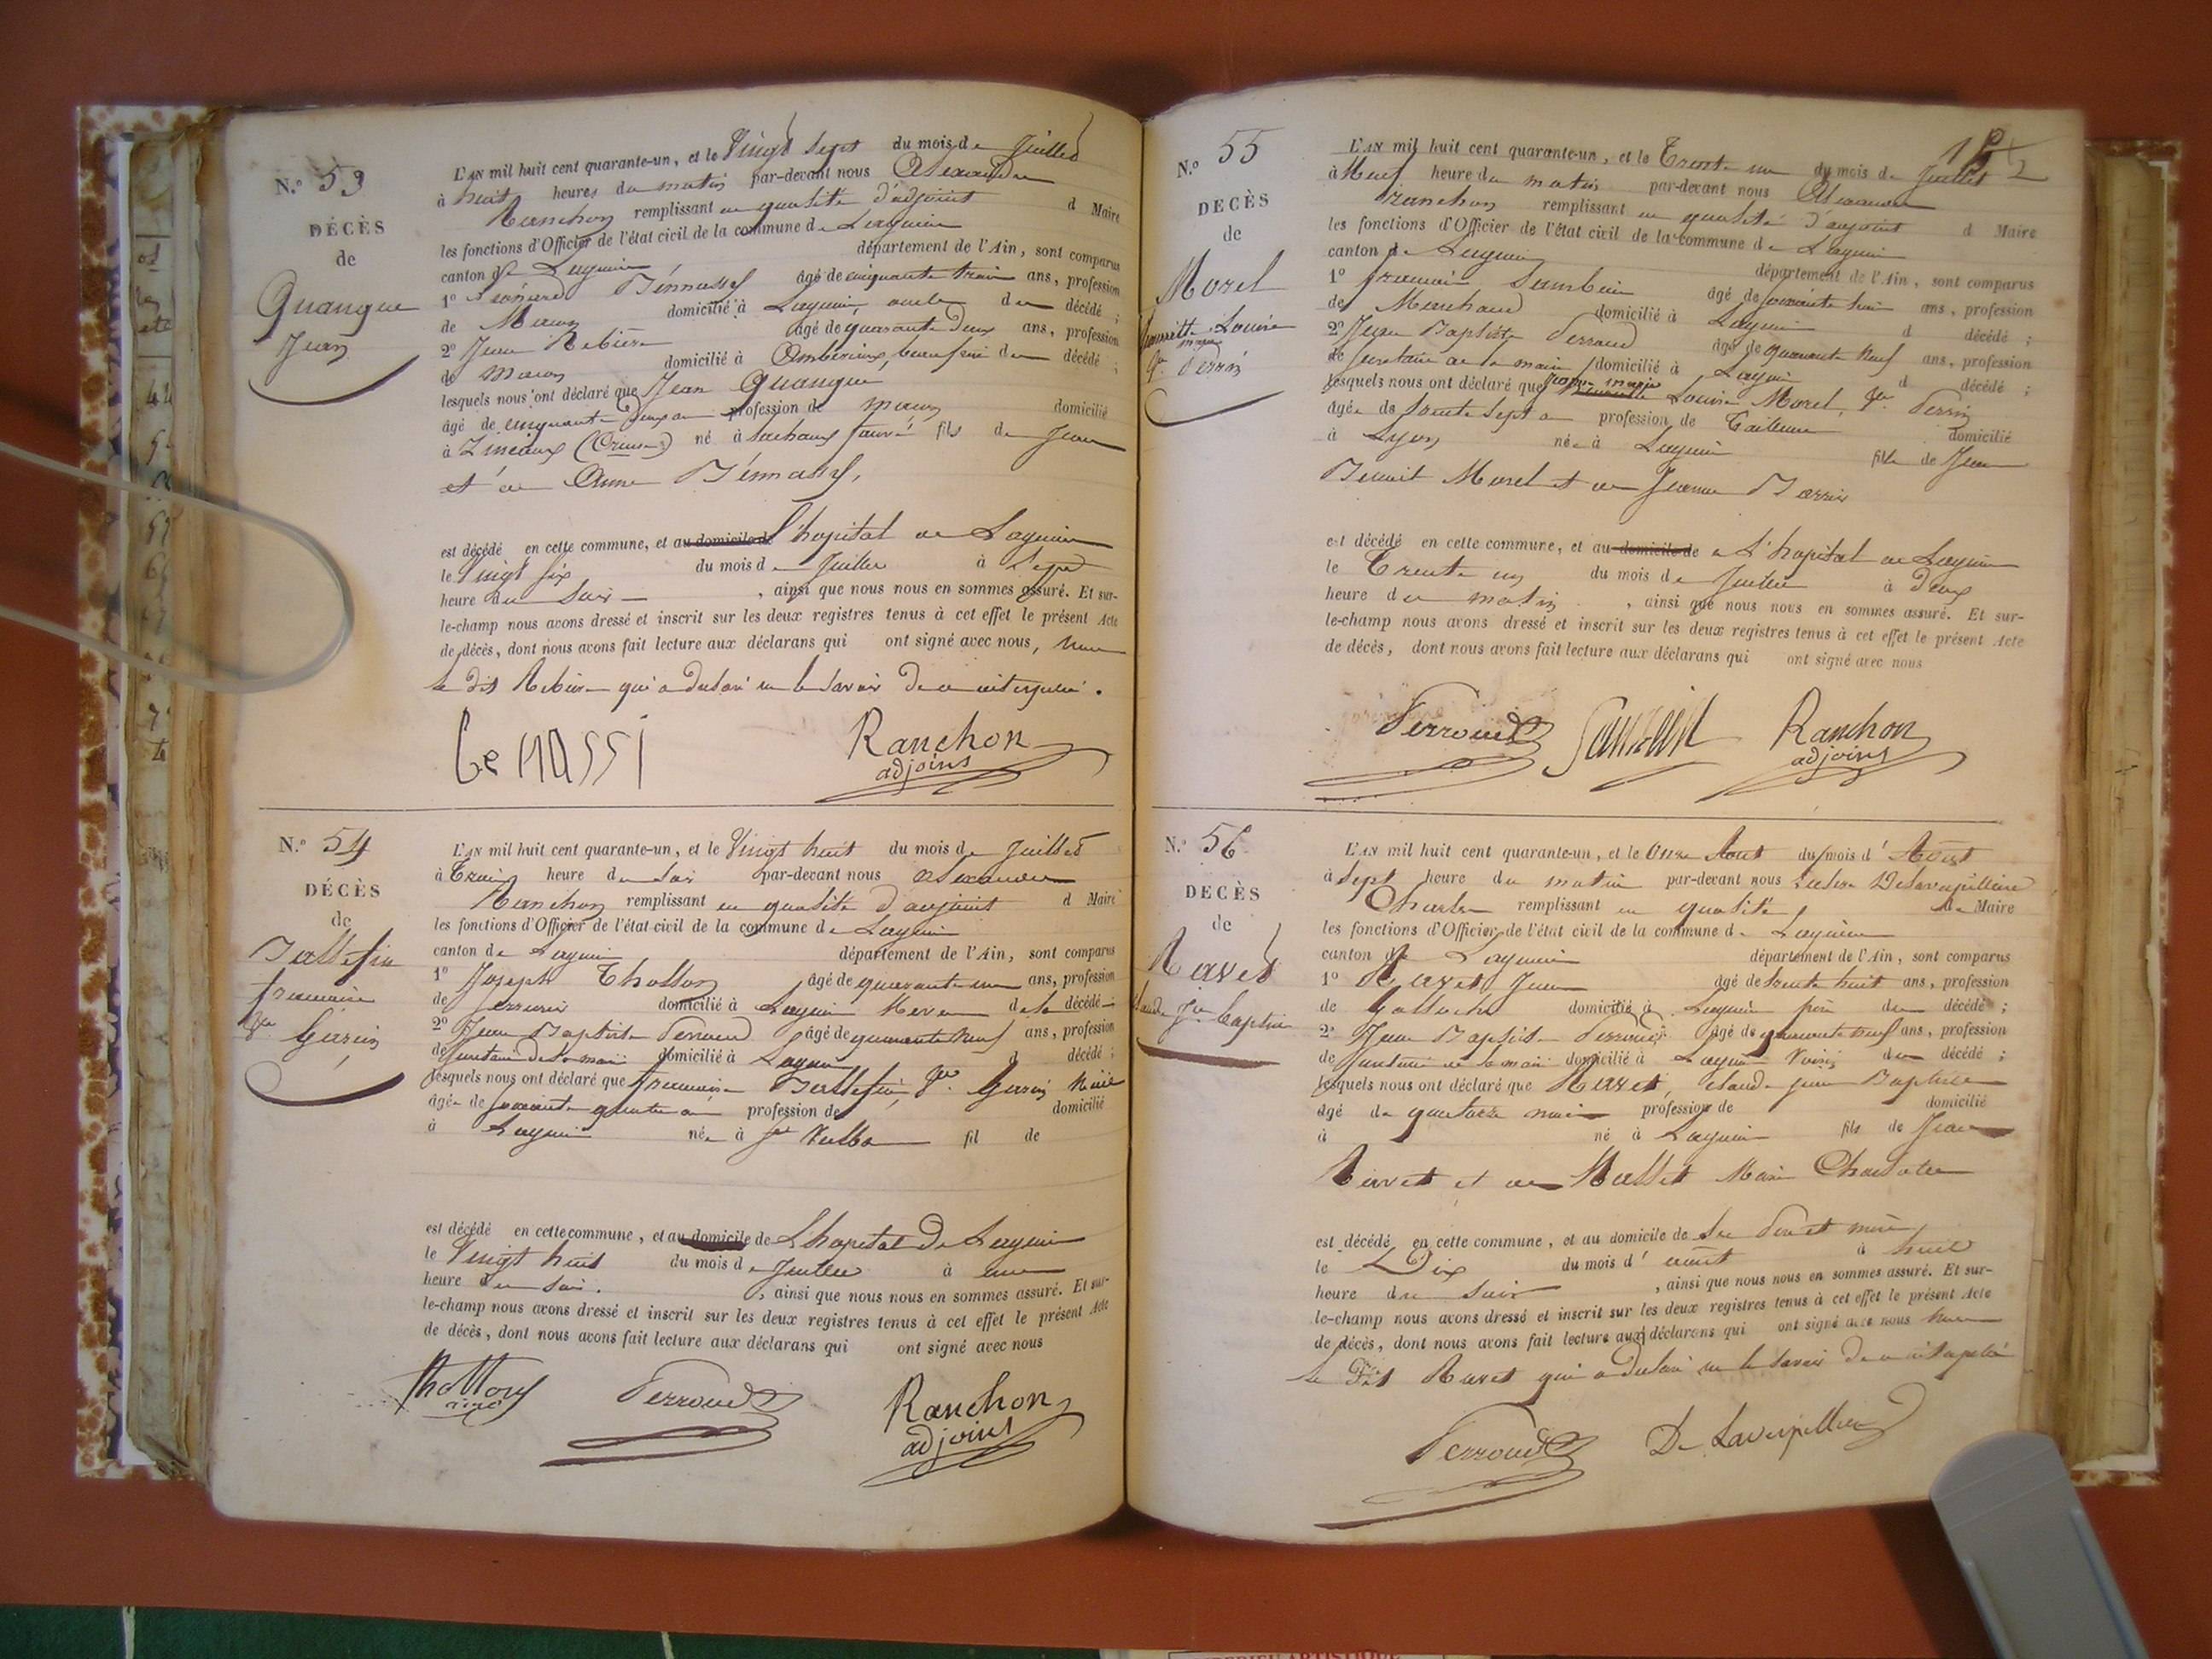 N.º 53
DÉCÈS
de
Quanque
Jean
L'AN mil huit cent quarante-un, et le Vingt Sept du mois de Juillet
à huit heures du matin par-devant nous Alexandre
Ranchon remplissant en qualité d'adjoint d Maire
les fonctions d'Officier de l'état civil de la commune de Lagnieu
canton de Lagnieu département de l'Ain, sont comparus
1º Bénassy âgé de cinquante trois ans, profession
de Maçon domicilié à Lagnieu, oncle du décédé ;
2º Jean Rebière âgé de quarante deux ans, profession
de maçon domicilié à Ambérieux, beau frère du décédé ;
lesquels nous ont déclaré que Jean Quanque
âgé de cinquante deux an profession de maçon domicilié
à (Creuse) né à fils de Jean
et de Anne Bénassy,
est décédé en cette commune, et au domicile de l'hopital de Lagnieu
le Vingt six du mois de Juillet à Sept
heure du Soir , ainsi que nous nous en sommes assuré. Et sur-
le-champ nous avons dressé et inscrit sur les deux registres tenus à cet effet le présent Acte
de décès, dont nous avons fait lecture aux déclarans qui ont signé avec nous, non
le dit Rebière qui a déclaré ne le savoir de ce interpellé.
Benassi
Ranchon
adjoint
N.º 54
DÉCÈS
de
Ballefin
françoise
Vve Guérin
L'AN mil huit cent quarante-un, et le Vingt huit du mois de Juillet
à Trois heure du Soir par-devant nous Alexandre
Ranchon remplissant en qualité d'adjoint d Maire
les fonctions d'Officier de l'état civil de la commune de Lagnieu
canton de Lagnieu département de l'Ain, sont comparus
1º Joseph Thollon âgé de quarante un ans, profession
de serrurier domicilié à Lagnieu Neveu de la décédé
2º Jean Baptiste Perroud âgé de quarante neuf ans, profession
de Secrétaire de la mairie domicilié à Lagnieu d décédé ;
lesquels nous ont déclaré que françoise Ballefin, Vve Guérin
âgée de soixante quatre an profession de domicilié
à Lagnieu née à St Vulbas fil de
est décédé en cette commune, et au domicile de L'hopital De Lagnieu
le Vingt huit du mois de Juillet à une
heure du soir. , ainsi que nous nous en sommes assuré. Et sur-
le-champ nous avons dressé et inscrit sur les deux registres tenus à cet effet le présent Acte
de décès, dont nous avons fait lecture aux déclarans qui ont signé avec nous
Thollon
Perroud
Ranchon
adjoint
N.º 55
DECÈS
de
Morel
Louise
Perrin
L'AN mil huit cent quarante-un, et le Trente un du mois de Juillet
à Neuf heure du matin par-devant nous Alexandre
Ranchon remplissant en qualité d'adjoint d Maire
les fonctions d'Officier de l'état civil de la commune de Lagnieu
canton de Lagnieu département de l'Ain, sont comparus
1º françois Sambin âgé de soixante huit ans, profession
de Marchand domicilié à Lagnieu d décédé ;
2º Jean Baptiste Perroud âgé de quarante Neuf ans, profession
de secrétaire de la mairie domicilié à Lagnieu d décédé ;
lesquels nous ont déclaré que Louise Morel, Perrin
âgée de trente Sept an profession de Tailleuse domicilié
à Lyon née à Lagnieu fille de Jean
Benoit Morel et de Jeanne
est décédé en cette commune, et au domicile de a L'hopital de Lagnieu
le Trente un du mois de Juillet à Deux
heure du matin , ainsi que nous nous en sommes assuré. Et sur-
le-champ nous avons dressé et inscrit sur les deux registres tenus à cet effet le présent Acte
de décès, dont nous avons fait lecture aux déclarans qui ont signé avec nous
Perroud
Ranchon
adjoint
N.º 56
DECÈS
de
Ravet
Claude Jean Baptiste
L'AN mil huit cent quarante-un, et le Onze Aout du mois d'Aout
à sept heure du matin par-devant nous Delaverpillière
Charles remplissant en qualité de Maire
les fonctions d'Officier de l'état civil de la commune de Lagnieu
canton de Lagnieu département de l'Ain, sont comparus
1º Ravet Jean âgé de trente huit ans, profession
de Galoche domicilié à Lagnieu père du décédé ;
2º Jean Baptiste Perroud âgé de quarante neuf ans, profession
de secrétaire de la mairie domicilié à Lagnieu Voisin du décédé ;
lesquels nous ont déclaré que Ravet, Claude Jean Baptiste
âgé de quatorze mois profession de domicilié
à né à Lagnieu fils de Jean
Ravet et de Mallet Marie Charlotte
est décédé en cette commune, et au domicile de Ses Père et mère,
le Dix du mois d'aout à huit
heure du soir , ainsi que nous nous en sommes assuré. Et sur-
le-champ nous avons dressé et inscrit sur les deux registres tenus à cet effet le présent Acte
de décès, dont nous avons fait lecture aux déclarans qui ont signé avec nous non
le Dit Ravet qui a déclaré ne le savoir de ce interpellé
Perroud
De Laverpillière